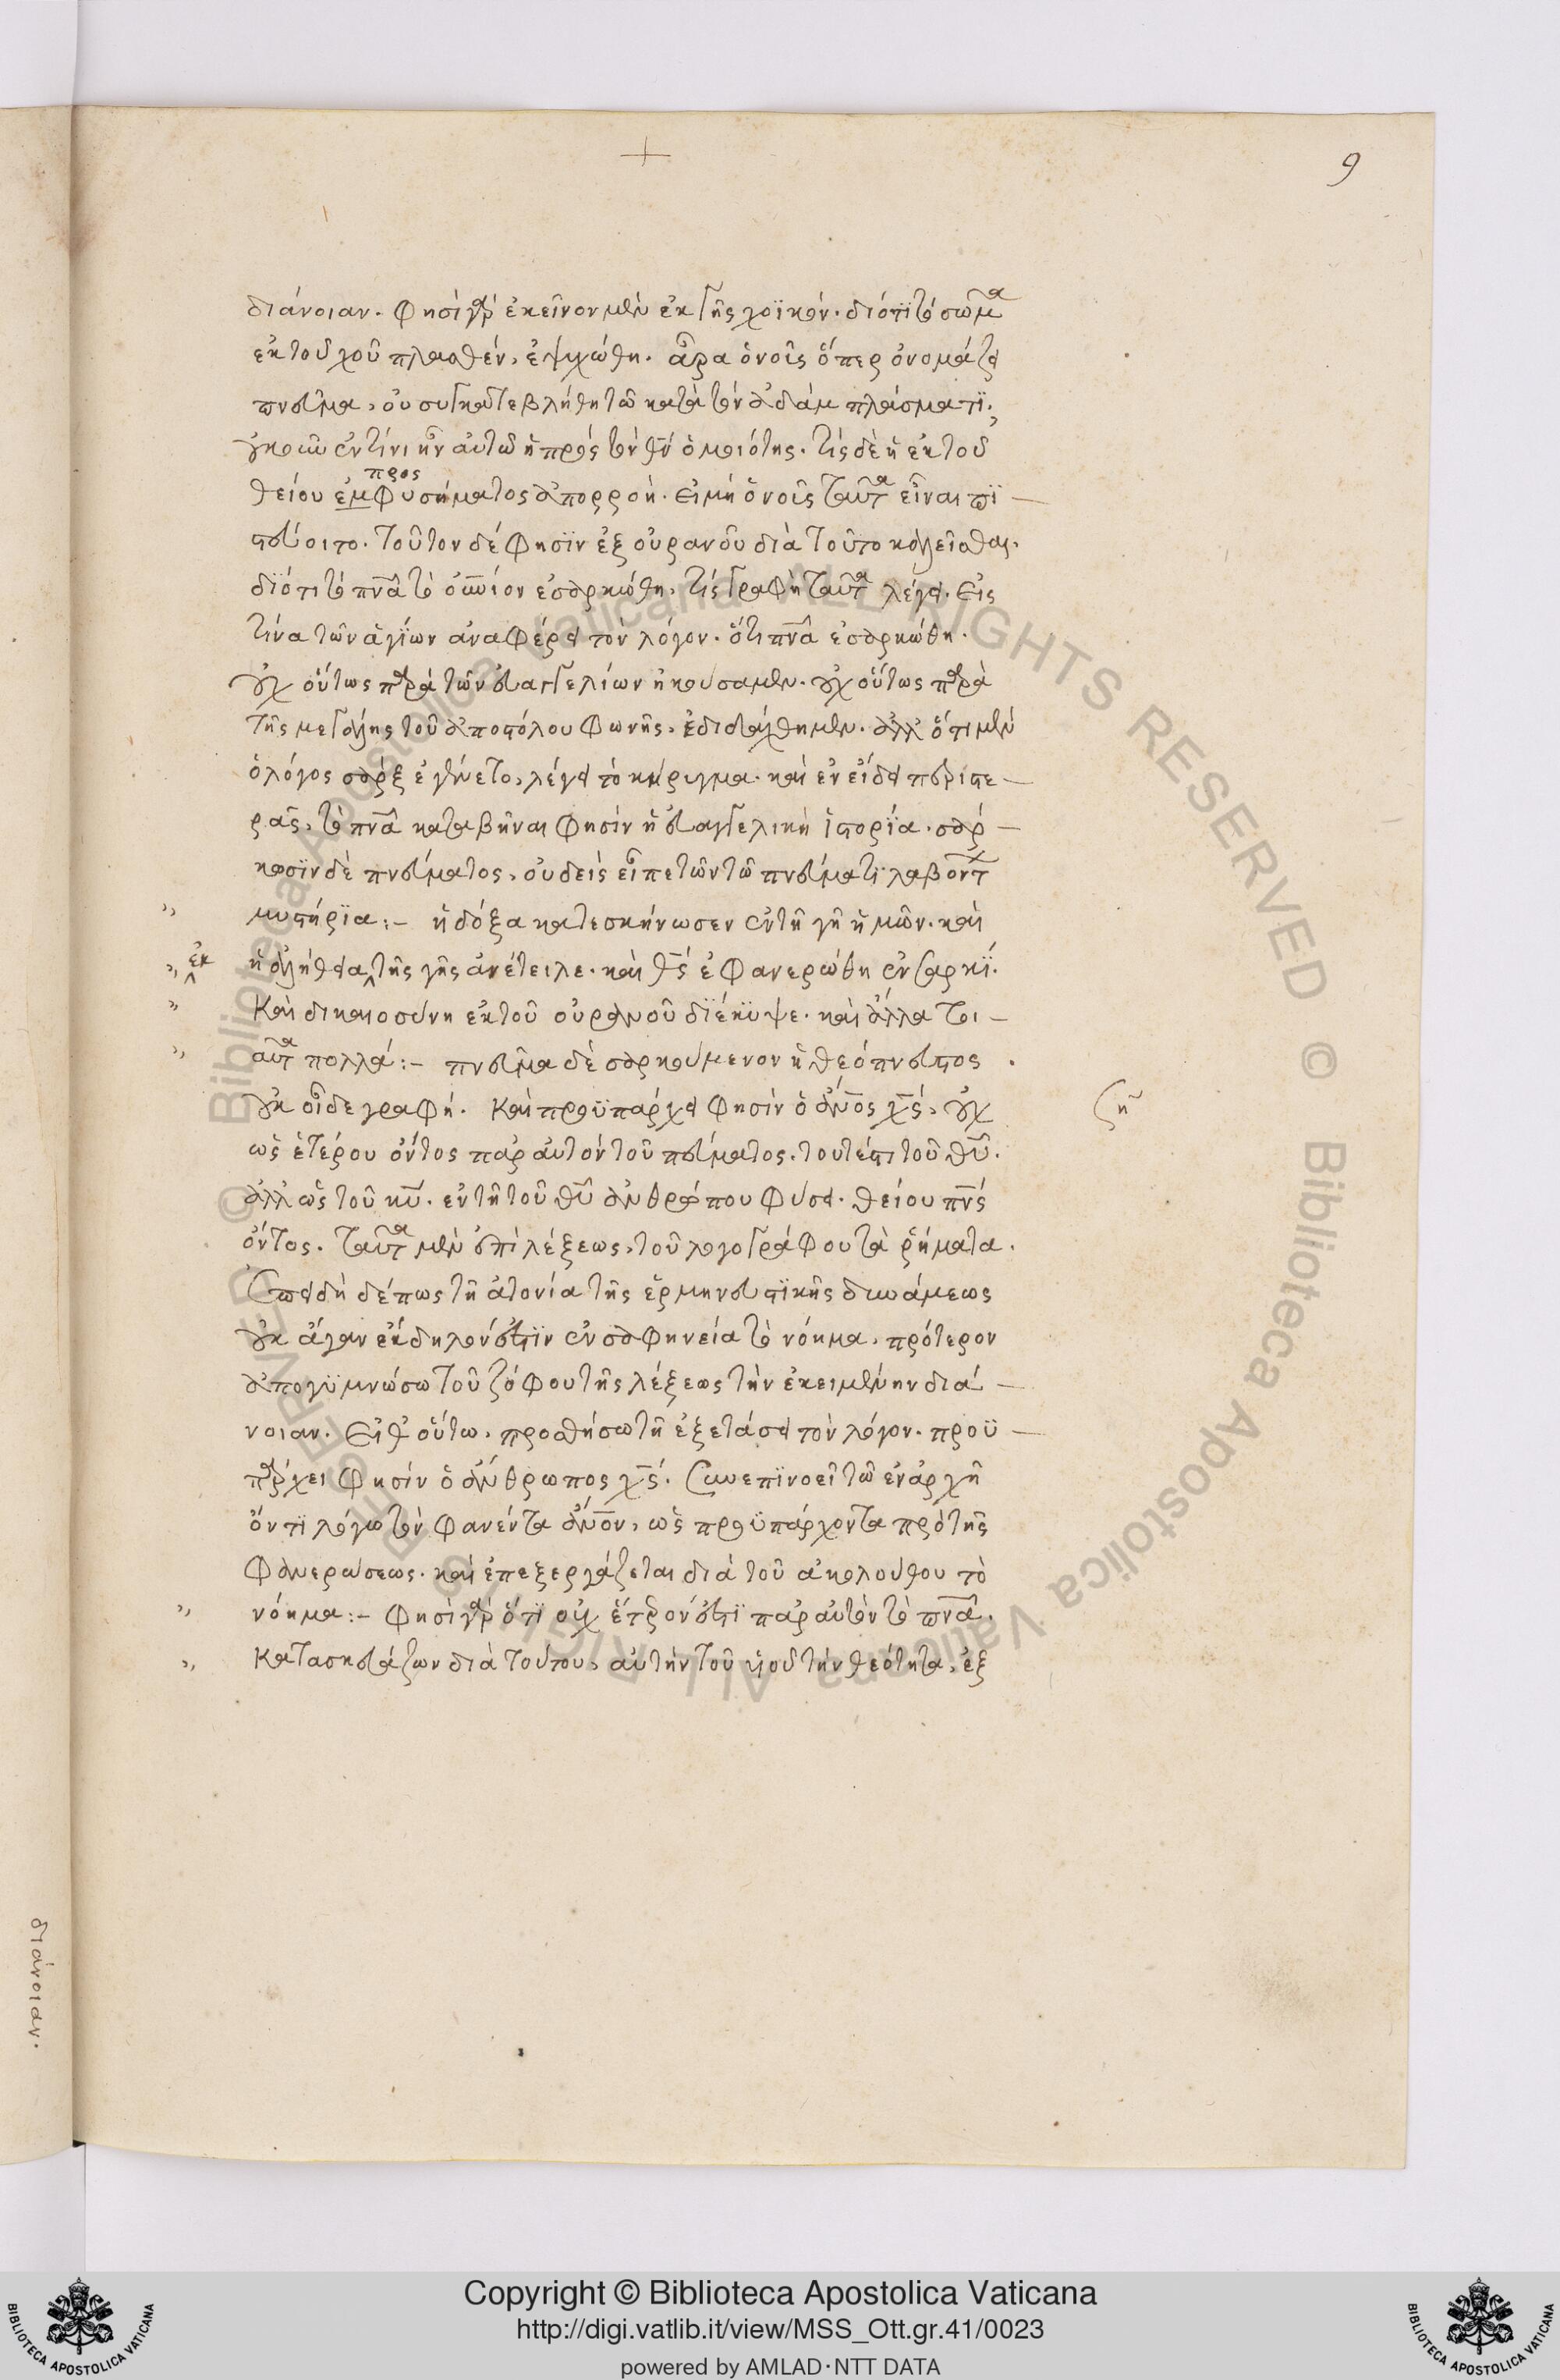 9
διάνοιαν. φησὶ γὰρ ἐκεῖνον μὲν ἐκ γῆς χοϊκόν. διότι τὸ σῶμα
ἐκ τοῦ χοῦ πλασθὲν, ἐψυχώθη. ἆρα ὁ νοῦς ὅπερ ὀνομάζει
πνεῦμα, οὐ συγκατεβλήθη τῶ κατὰ τὸν ἀδὰμ πλάσματι;
ἐν τίνι ἦν αὐτῶ ἡ πρὸς τὸν θν̅ ὁμοιότης. τίς δὲ ἡ ἐκ τοῦ
προς
θείου ἐμφυσήματος ἀπορροὴ. εἰ μὴ ὁ νοῦς ταῦτα εἶναι πι
στεύοιτο. τοῦτον δέ φησὶν ἐξ οὐρανοῦ διὰ τοῦτο καλεῖσθαι.
διότι τὸ πν̅α τὸ οὐνίον ἐσαρκώθη. τίς γραφὴ ταῦτα λέγει. εἰς
τίνα τῶν ἁγίων ἀναφέρει τὸν λόγον. ὅτι πν̅α ἐσαρκώθη.
οὐχ οὕτως παρὰ τῶν εὐαγγελίων ἠκούσαμεν. οὐχ οὕτως παρὰ
τῆς μεγάλης τοῦ ἀποστόλου φωνῆς, ἐδιδάχθημεν. ἀλλ' ὅτι μὲν
ὁ λόγος σὰρξ ἐγένετο, λέγει τὸ κήρυγμα. καὶ ἐν εἴδει περιστε
ρᾶς, τὸ πν̅α καταβῆναι φησὶν ἡ εὐαγγελικὴ ἱστορία. σάρ
κωσιν δὲ πνεύματος, οὐδεὶς εἶπε τῶν τῶ πνεύματι λαβόντ
μυστήρια:- ἡ δόξα κατεσκήνωσεν ἐν τῆ γῆ ἡμῶν. καὶ
ἐκ
ἡ ἀλήθεια τῆς γῆς ἀνέτειλε. καὶ θς̅ ἐφανερώθη ἐν σαρκί.
καὶ δικαιοσύνη ἐκ τοῦ οὐρανοῦ διέκυψε. καὶ ἄλλα τοι
αῦτα πολλά:- πνεῦμα δὲ σαρκούμενον ἡ θεόπνευστος
οὐκ οἶδε γραφή. καὶ προϋπάρχει φησὶν ὁ ἄνο̅ς χς̅, οὐχ
ζη
ὡς ἑτέρου ὄντος παρ' αὐτὸν τοῦ πνεύματος, τουτέστι τοῦ θυ̅.
ἀλλ' ὡς τοῦ κυ̅. ἐν τῆ τοῦ θυ̅ ἀνθρώπου φύσει. θείου πνς̅
ὄντος. ταῦτα μὲν ἐπὶ λέξεως, τοῦ λογογράφου τὰ ῥήματα.
ἐπειδὴ δέ πως τῆ ἀτονία τῆς ἑρμηνευτικῆς δυνάμεως
οὐκ ἄγαν ἐκδηλόν ἐστιν ἐν σαφηνεία τὸ νόημα, πρότερον
ἀπογυμνώσω τοῦ ζόφου τῆς λέξεως τὴν ἐκειμένην διά
νοιαν. εἶθ' οὕτω, προσθήσω τῆ ἐξετάσει τὸν λόγον. προϋ
πάρχει φησὶν ὁ ἄνθρωπος χς̅. συνεπινοεῖ τῶ ἐν ἀρχῆ
ὄντι λόγω τὸν φανέντα ἄνο̅ν, ὡς προϋπάρχοντα πρὸ τῆς
φανερώσεως. καὶ ἐπεξεργάζεται διὰ τοῦ ἀκολούθου τὸ
νόημα:- φησὶ γὰρ ὅτι οὐχ ἕτερόν ἐστι παρ' αὐτὸν τὸ πν̅α.
κατασκευάζων διὰ τούτου, αὐτὴν τοῦ υἱοῦ τὴν θεότητα, ἐξ
διάνοιαν.
© Biblioteca Apostolica Vaticana ALL RIGHTS RESERVED © Biblioteca Apostolica Vaticana ALL RIGHTS RESERVED
Copyright © Biblioteca Apostolica Vaticana
http://digi.vatlib.it/view/MSS_Ott.gr.41/0023
powered by AMLAD·NTT DATA
BIBLIOTECA APOSTOLICA VATICANA
BIBLIOTECA APOSTOLICA VATICANA